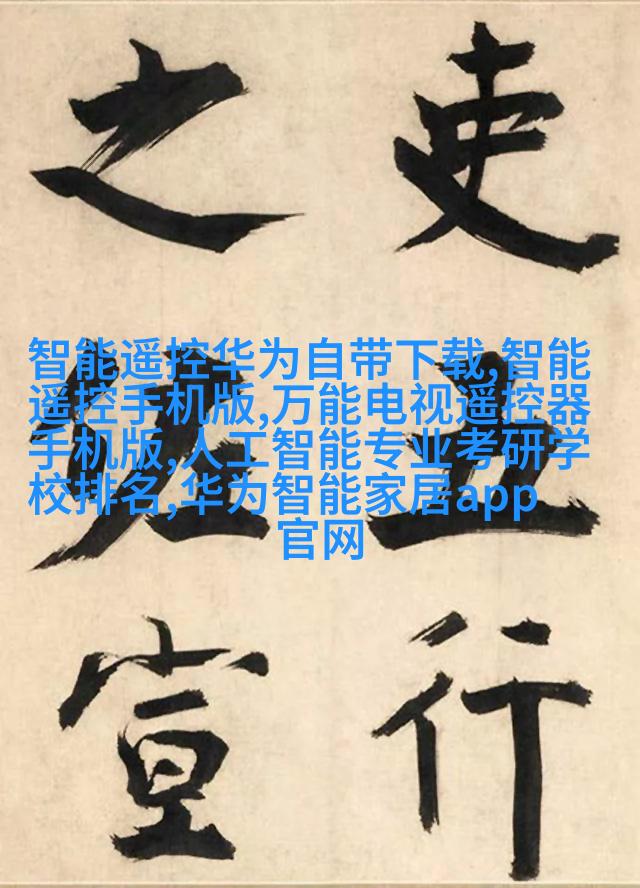 吏五行
之佐宣
智能遥控华为自带下载,智能
遥控手机版,万能电视遥控器
手机版,人工智能专业考研学
校排名,华为智能家居app
官网